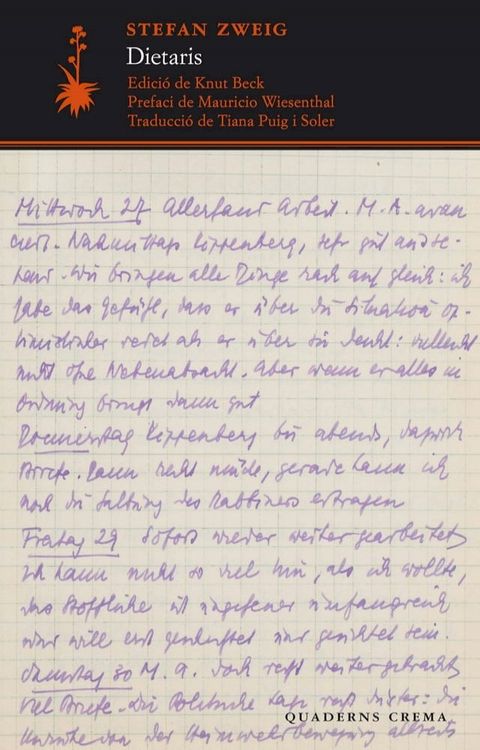 STEFAN ZWEIG
Dietaris
Edició de Knut Beck
Prefaci de Mauricio Wiesenthal
Traducció de Tiana Puig i Soler
Mittwoch 27 Allerhand Arbeit. M. A. avan
ciert. Nachmittags Kippenberg, sehr gut ausse-
hend. Wir bringen alle Dinge rasch auf gleich: ich
habe das Gefühl, dass er über die Situation op-
timistischer redet als er über sie denkt: vielleicht
nicht ohne Nebenabsicht. Aber wenn er alles in
Ordnung bringt dann gut
Donnerstag Kippenberg bis abends, dazwisch
Briefe. Dann recht müde, gerade kann ich
noch die des Rabbiners ertragen
Freitag 29 Sofort wieder weitergearbeitet
Ich kann nicht so viel tun, als ich wollte,
das Stoffliche ist ungeheuer umfangreich
und will erst gesichtet sein.
Samstag 30 M. A. doch recht weitergebracht
Viel Briefe. Die Politische Lage recht düster: die
von der Heimwehrbewegung
QUADERNS CREMA